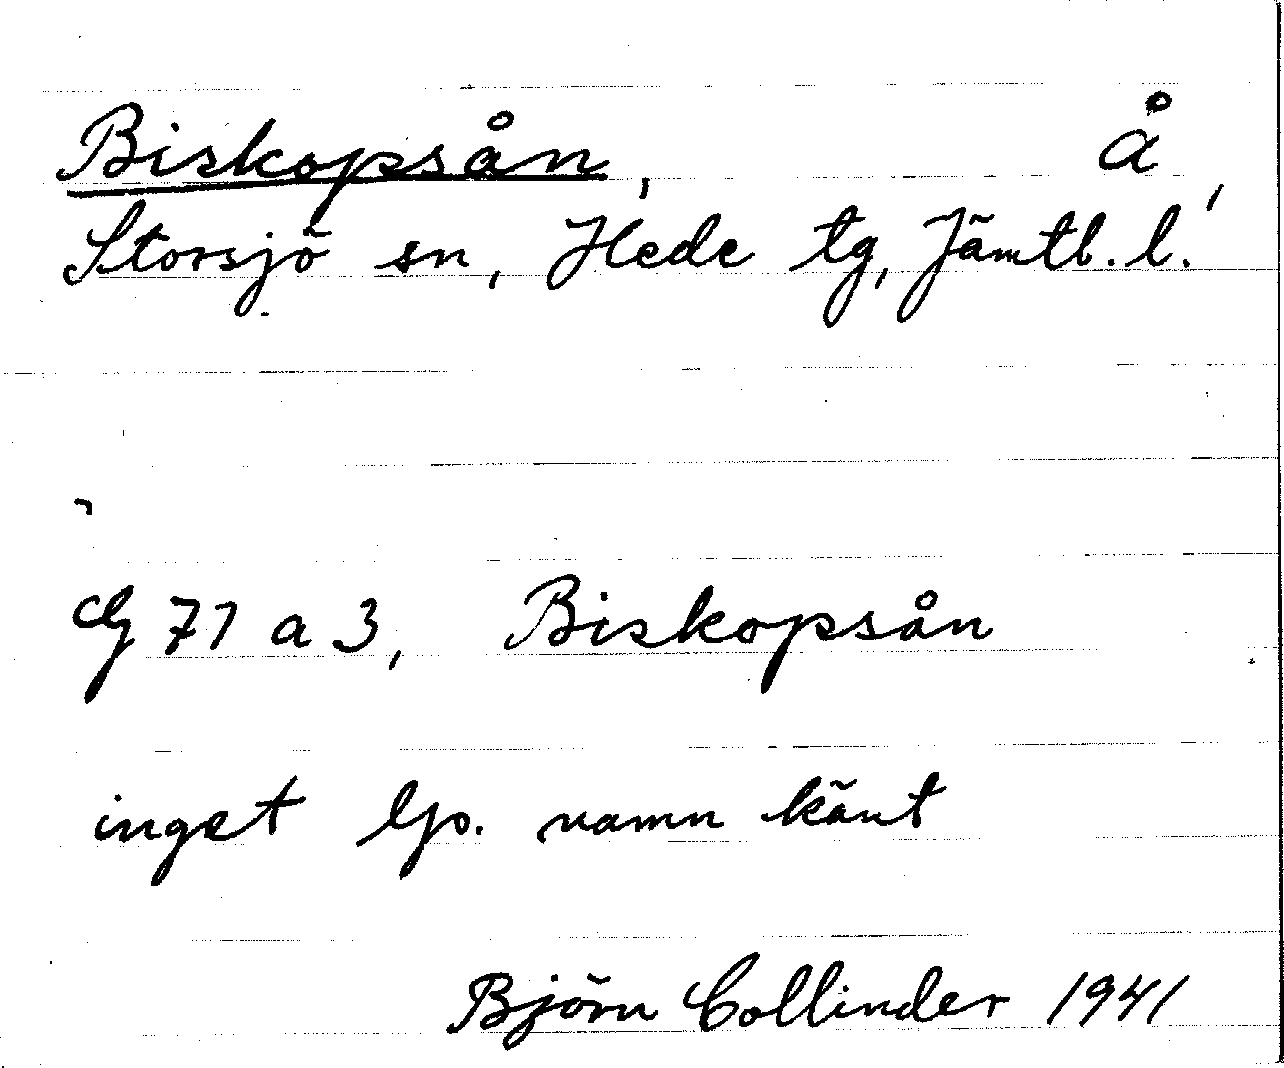 Biskopsån, å
Storsjö sn, Hede tg, Jämtl. l.
71 a 3, Biskopsån
inget lp. namn känt
Björn Collinder 1941